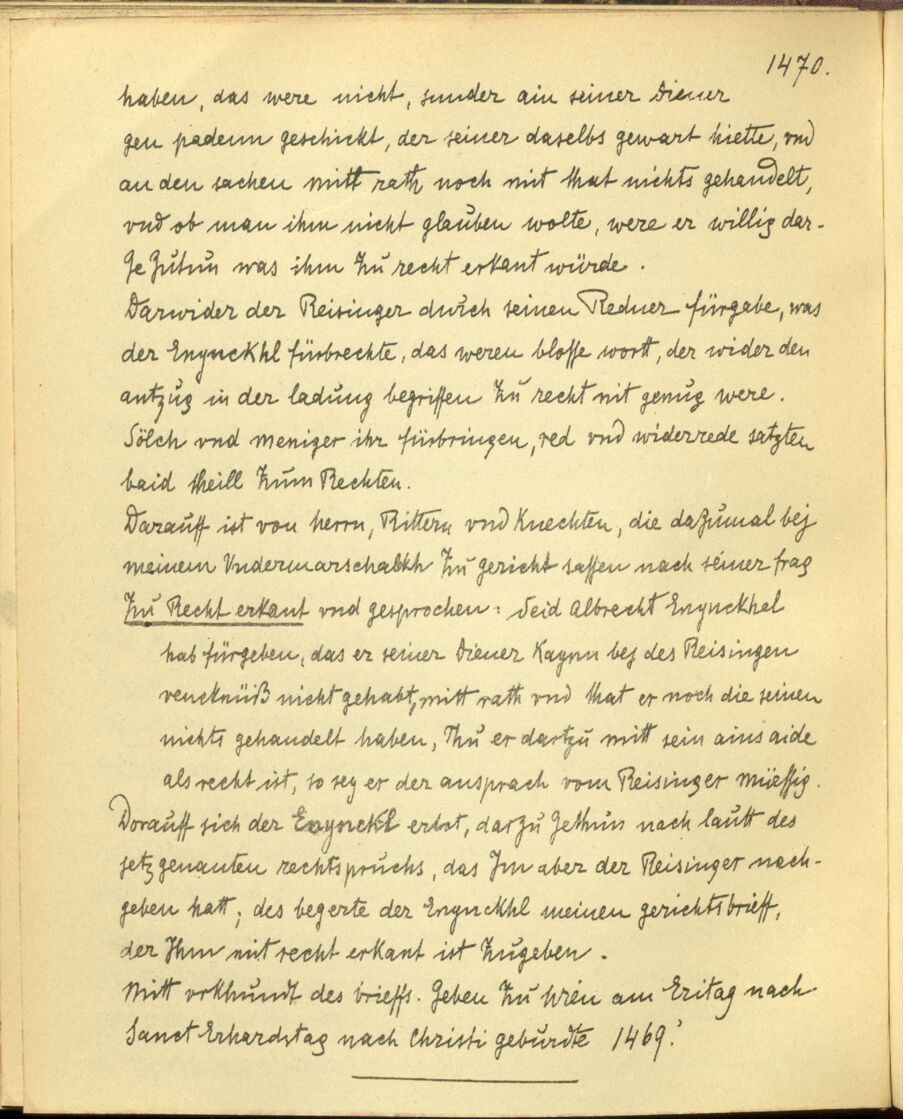 1470.
haben, das were nicht, sunder ain seiner Diener
gen padenn geschickt, der seiner daselbs gewart hiette, vnd
an den sachen mitt rath noch mit that nichts gehandelt,
vnd ob man ihm nicht glauben wolte, were er willig dar-
ge Zuthun was ihm Zu recht erkant würde.
Darwider der Reisinger durch seinen Redner fürgabe, was
der Enynckhl fürbrechte, das weren blosse wortt, der wider den
antzug in der ladung begriffen Zu recht nit genug were.
Sölch vnd meniger ihr fürbringen, red vnd widerrede satzten
baid theill Zum Rechten.
Darauff ist von herrn, Rittern vnd Knechten, die daZumal bej
meinem Vndermarschalkh Zu gericht sassen nach seiner frag
Zu Recht erkant vnd gesprochen: Seid Albrecht Enynckhel
hab fürgeben, das er seiner Diener Kaynn bej des Reisingen
vencknüß nicht gehabt, mitt rath vnd that er noch die seinen
nichts gehandelt haben, Thu er dartzu mitt sein ains aide
als recht ist, so sey er der ansprach vom Reisinger müessig.
Dorauff sich der Enynckl erbot, darZu Zethun nach lautt des
jetzgenanten rechtspruchs, das Im aber der Reisinger nach-
geben hatt; des begerte der Enynckhl meinen gerichtsbrieff,
der Ihm mit recht erkant ist Zugeben.
Mitt vrkhundt des brieffs. Geben Zu Wien am Eritag nach
Sanct Erhardstag nach Christi geburdte 1469.